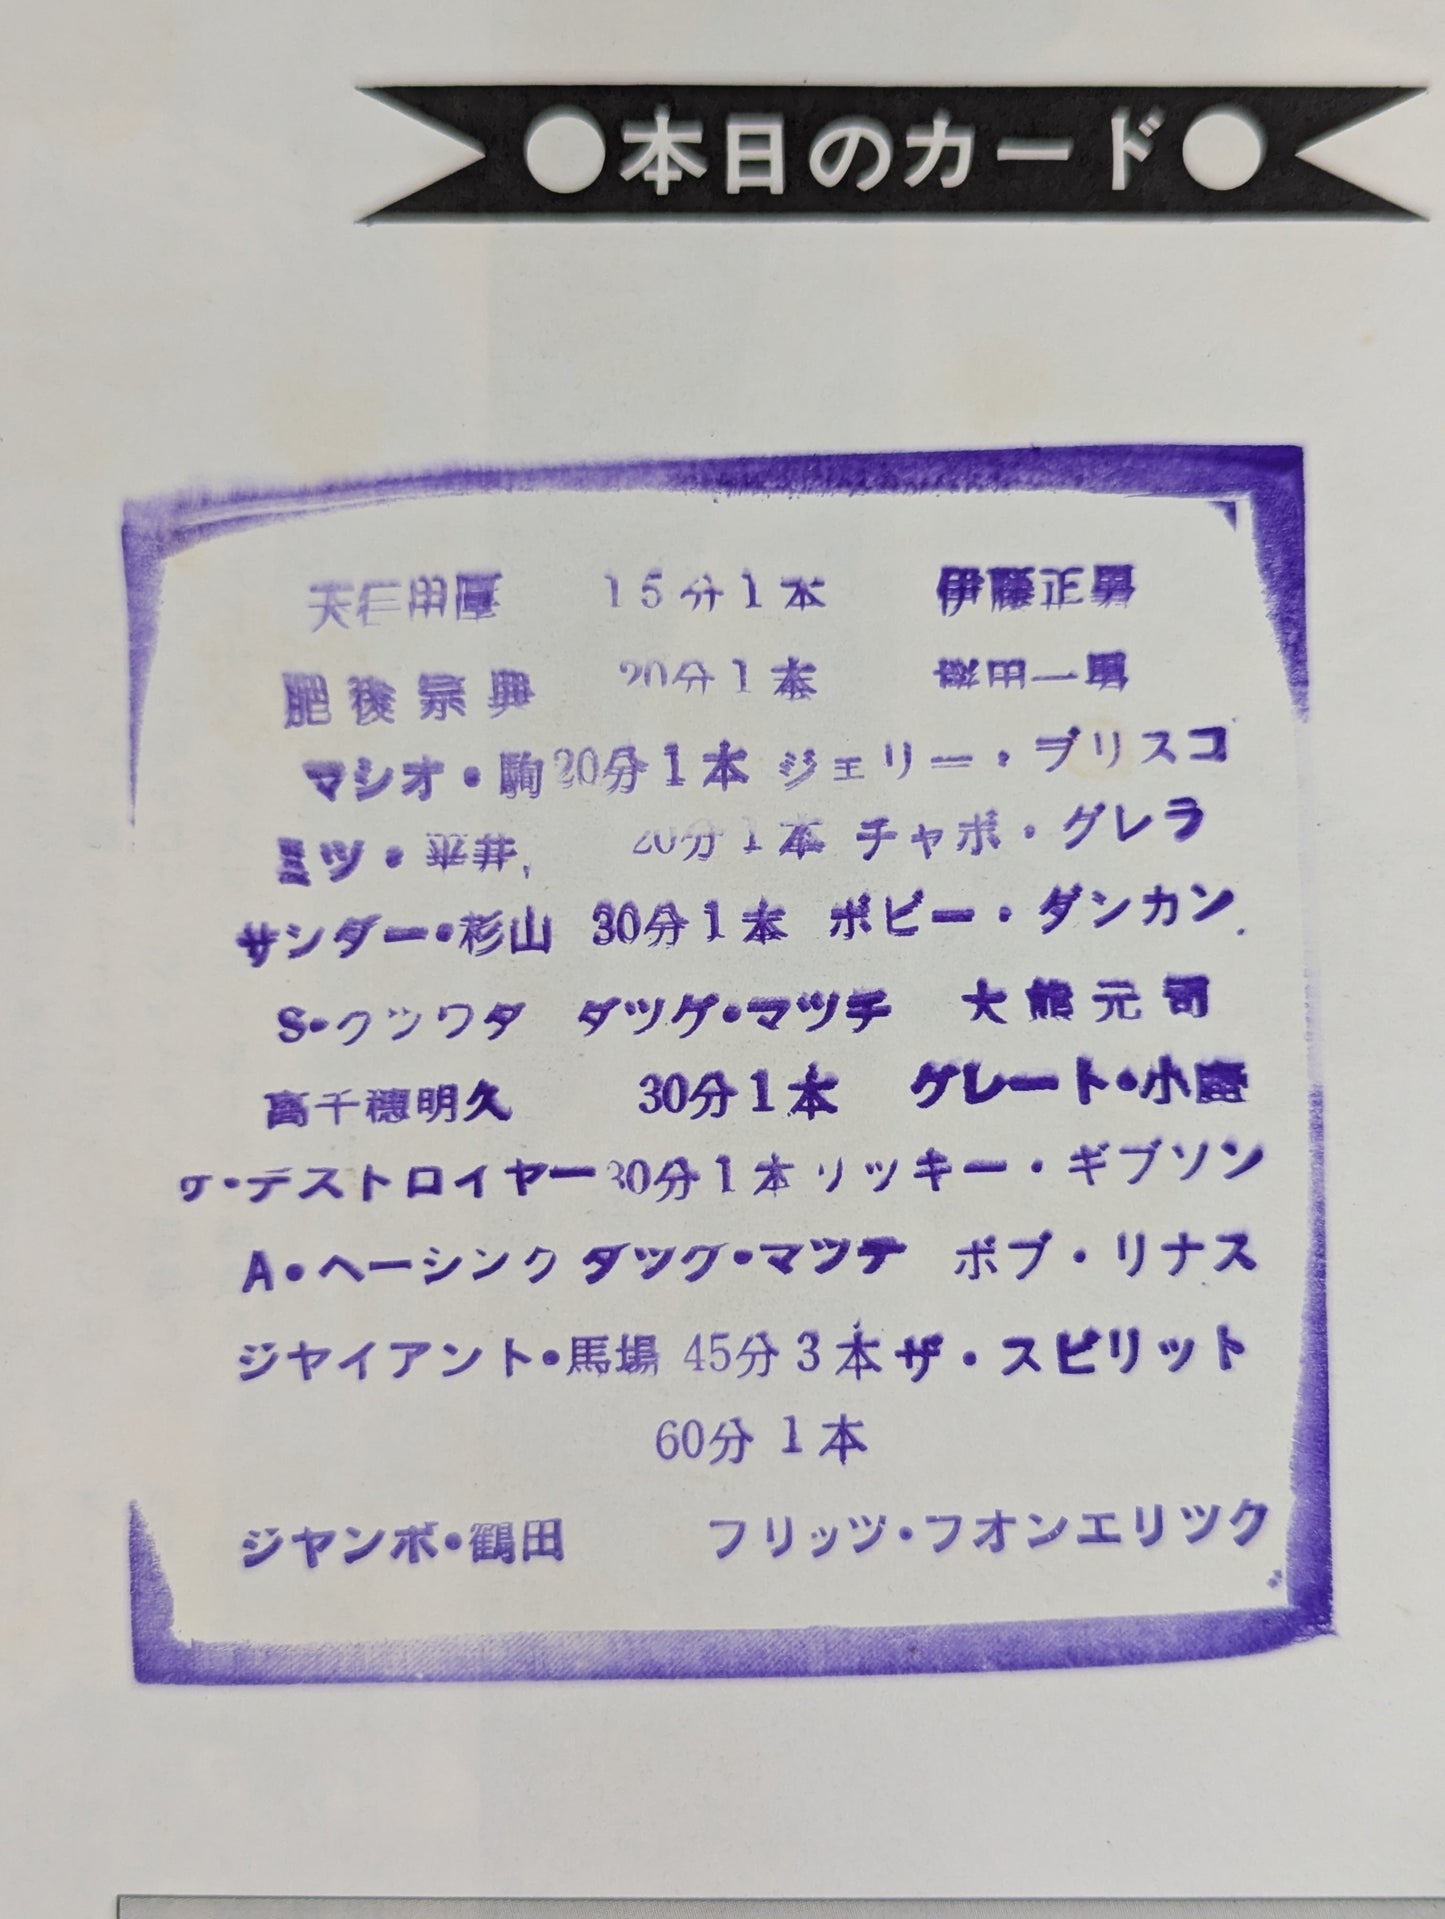 ●本日のカード●
天仁田厚 15分1本 伊藤正男
肥後宗典 20分1本 桜田一男
マシオ・駒 20分1本 ジェリー・ブリスコ
ミツ・平井 20分1本 チャボ・グレラ
サンダー・杉山 30分1本 ボビー・ダンカン
S・クツワダ ダツグ・マツチ 大熊元司
高千穂明久 30分1本 グレート・小鹿
ザ・デストロイヤー 30分1本 リッキー・ギブソン
A・ヘーシンク ダツグ・マツチ ボブ・リナス
ジヤイアント・馬場 45分3本 ザ・スピリット
60分1本
ジヤンボ・鶴田 フリッツ・フオンエリツク